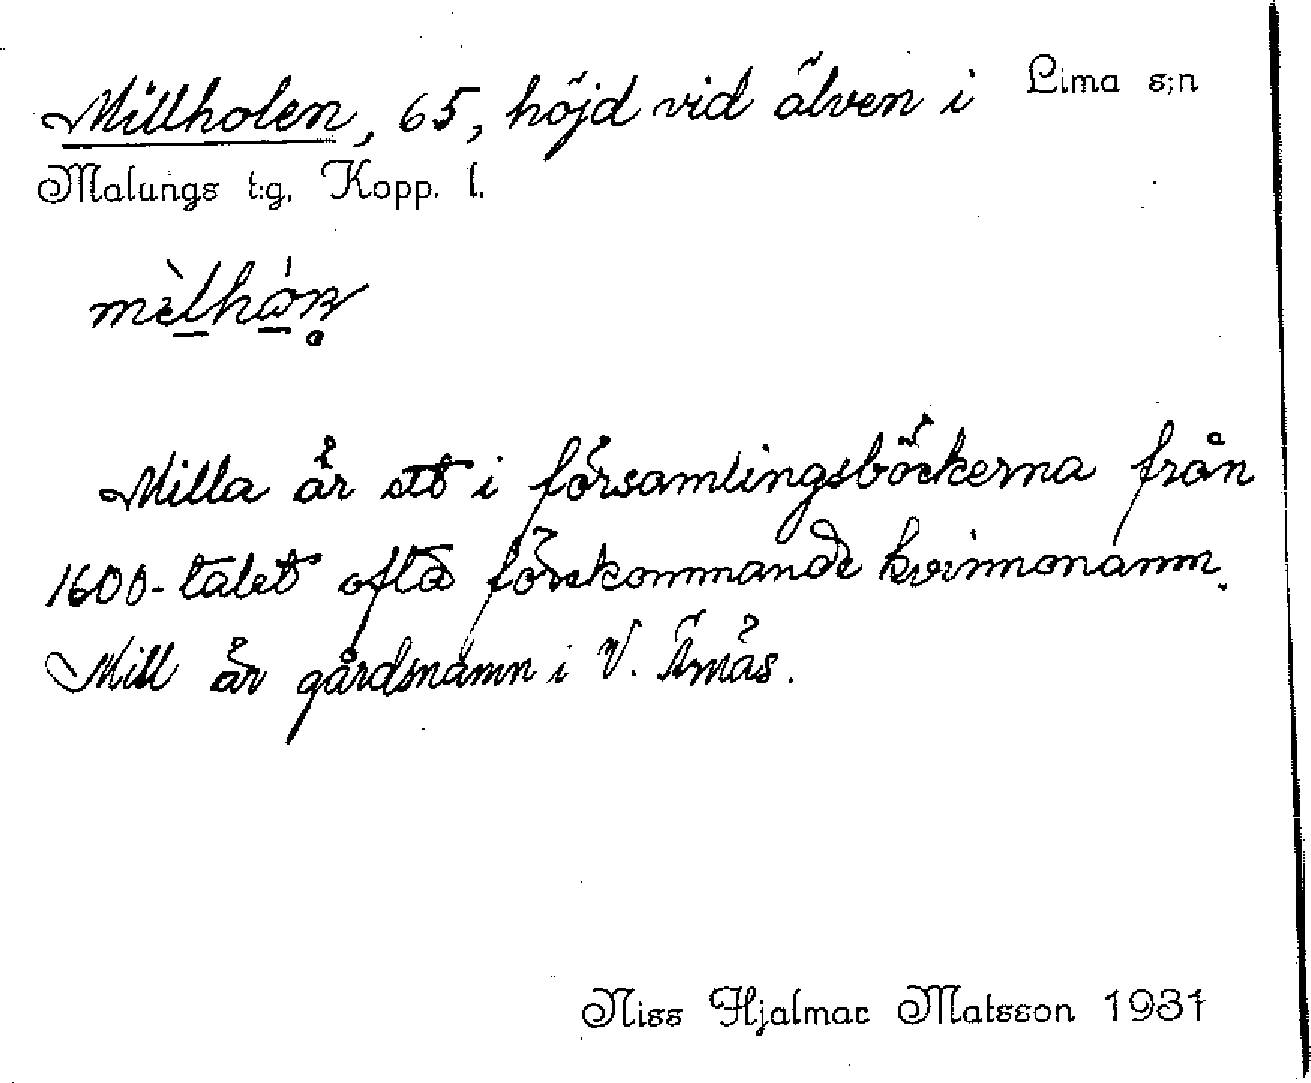 Millholen, 65, höjd vid älven i Lima s:n
Malungs t:g, Kopp. l.
mèlhån
Milla är ett i församlingsböckerna från
1600-talet ofta förekommande kvinnonamn.
Mill är gårdsnamn i V. Ärnäs.
Niss Hjalmar Matsson 1931